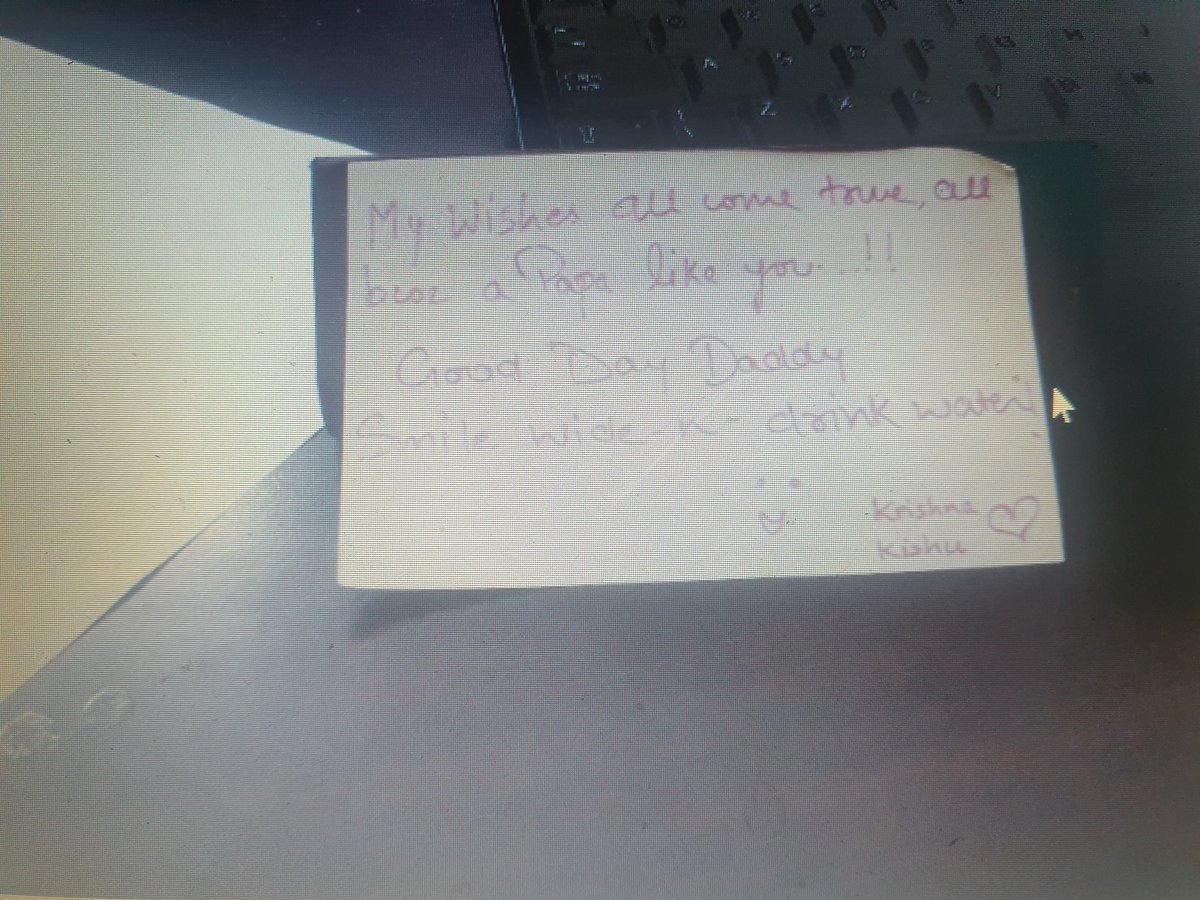 My Wishes all come true, all
bcoz a Papa like you...!!
Good Day Daddy
Smile wide n drink water!
Krishna
Kishu